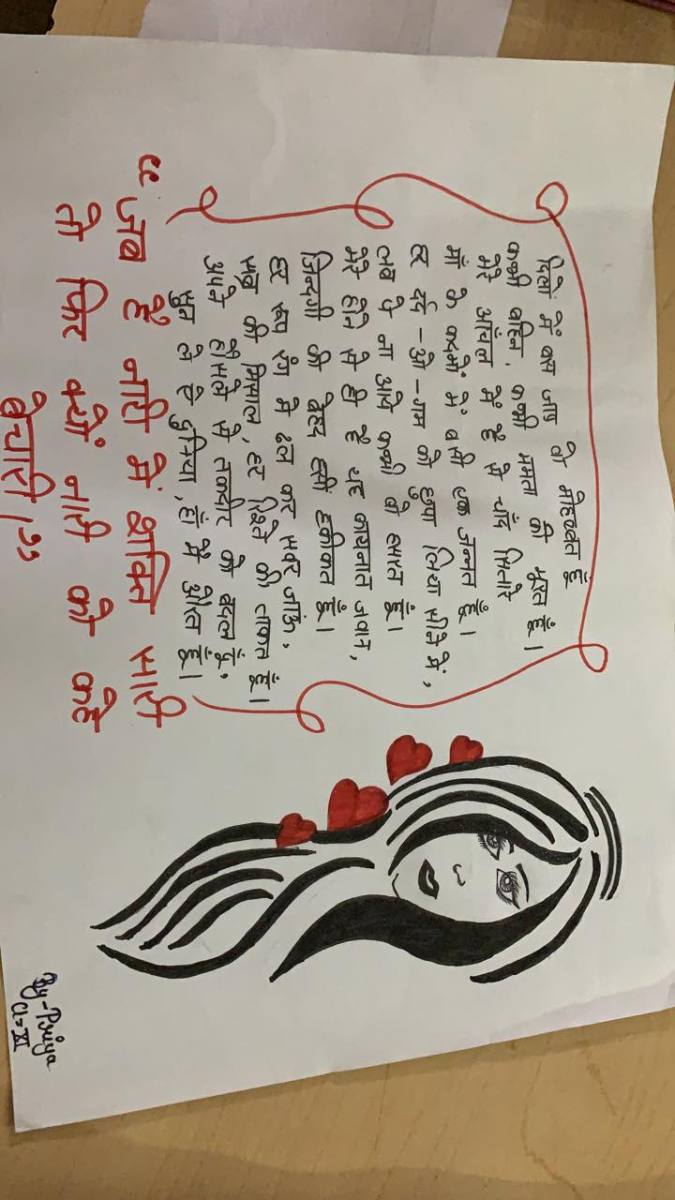 दिलों में बस जाए वो मोहब्बत हूँ
कभी बहिन, कभी ममता की मूरत हूँ।
मेरे आँचल में है से चाँद सितारे
माँ के कदमों में बसी एक जन्नत हूँ।
हर दर्द-ओ-गम को छुपा लिया सीने में,
लब पे ना आये कभी वो हसरत हूँ।
मेरे होने से ही है यह कायनात जवान,
ज़िन्दगी की बेहद हसीं हकीकत हूँ।
हर रूप रंग में ढल कर सवर जाऊं,
सब्र की मिसाल, हर रिश्ते की ताकत हूँ।
अपने हौसले से तकदीर को बदल दूँ,
सुन ले ऐ दुनिया, हाँ मैं औरत हूँ।
“जब है नारी में शक्ति सारी
तो फिर क्यों नारी को कहे
बेचारी।”
By-Priya
Cl=XI